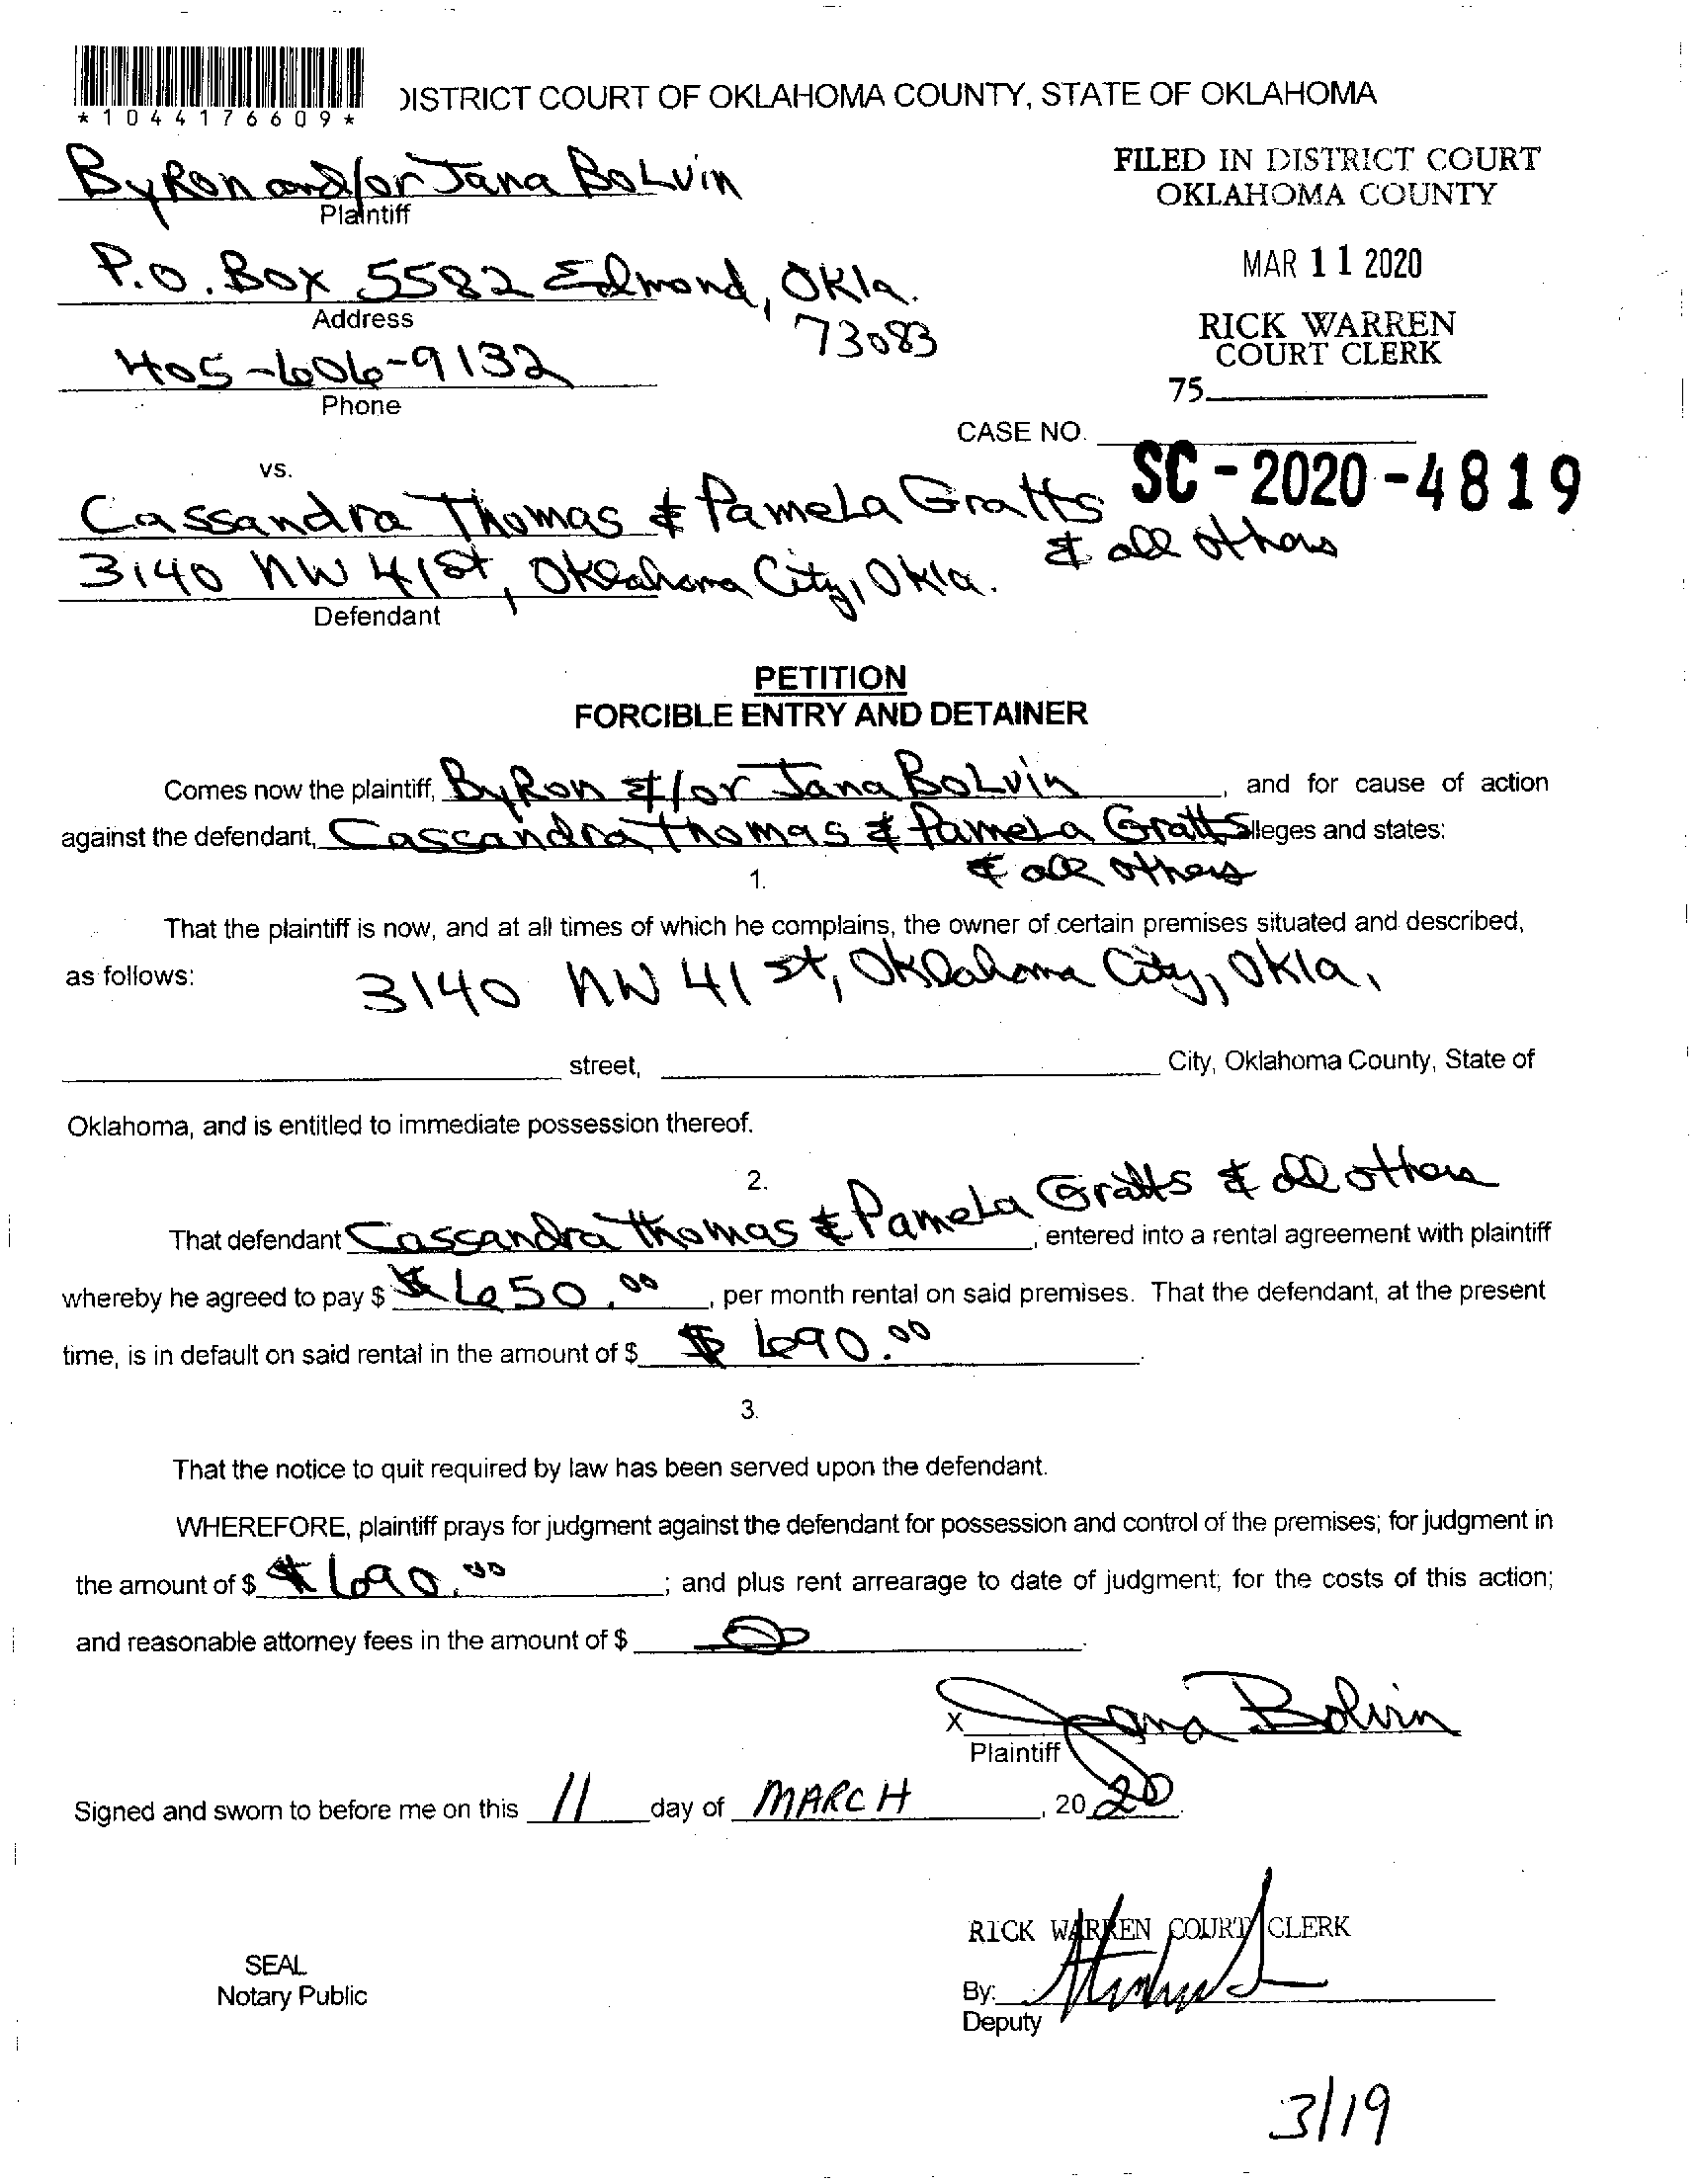 *1044176609*
DISTRICT COURT OF OKLAHOMA COUNTY, STATE OF OKLAHOMA
ByRon and/or Jana BoLvin
Plaintiff
FILED IN DISTRICT COURT
OKLAHOMA COUNTY
P.O. Box 5582 Edmond, Okla.
73083
Address
MAR 11 2020
405-606-9132
Phone
RICK WARREN
COURT CLERK
75
CASE NO.
SC-2020-4819
vs.
Cassandra Thomas & PameLa Gratts
& all others
3140 NW 41st, Oklahoma City, Okla.
Defendant
PETITION
FORCIBLE ENTRY AND DETAINER
Comes now the plaintiff, ByRon &/or Jana BoLvin, and for cause of action
against the defendant, Cassandra Thomas & PameLa Gratts lleges and states:
& all others
1.
That the plaintiff is now, and at all times of which he complains, the owner of certain premises situated and described,
as follows: 3140 NW 41 st, Oklahoma City, Okla,
street, City, Oklahoma County, State of
Oklahoma, and is entitled to immediate possession thereof.
2.
That defendant Cassandra Thomas & PameLa Gratts & all others, entered into a rental agreement with plaintiff
whereby he agreed to pay $ $650.00, per month rental on said premises. That the defendant, at the present
time, is in default on said rental in the amount of $ $690.00.
3.
That the notice to quit required by law has been served upon the defendant.
WHEREFORE, plaintiff prays for judgment against the defendant for possession and control of the premises; for judgment in
the amount of $ $690.00; and plus rent arrearage to date of judgment; for the costs of this action;
and reasonable attorney fees in the amount of $ 0.
X Jana Bolvin
Plaintiff
Signed and sworn to before me on this 11 day of MARCH, 20 20.
RICK WARREN COURT CLERK
SEAL
Notary Public
By:
Deputy
3/19